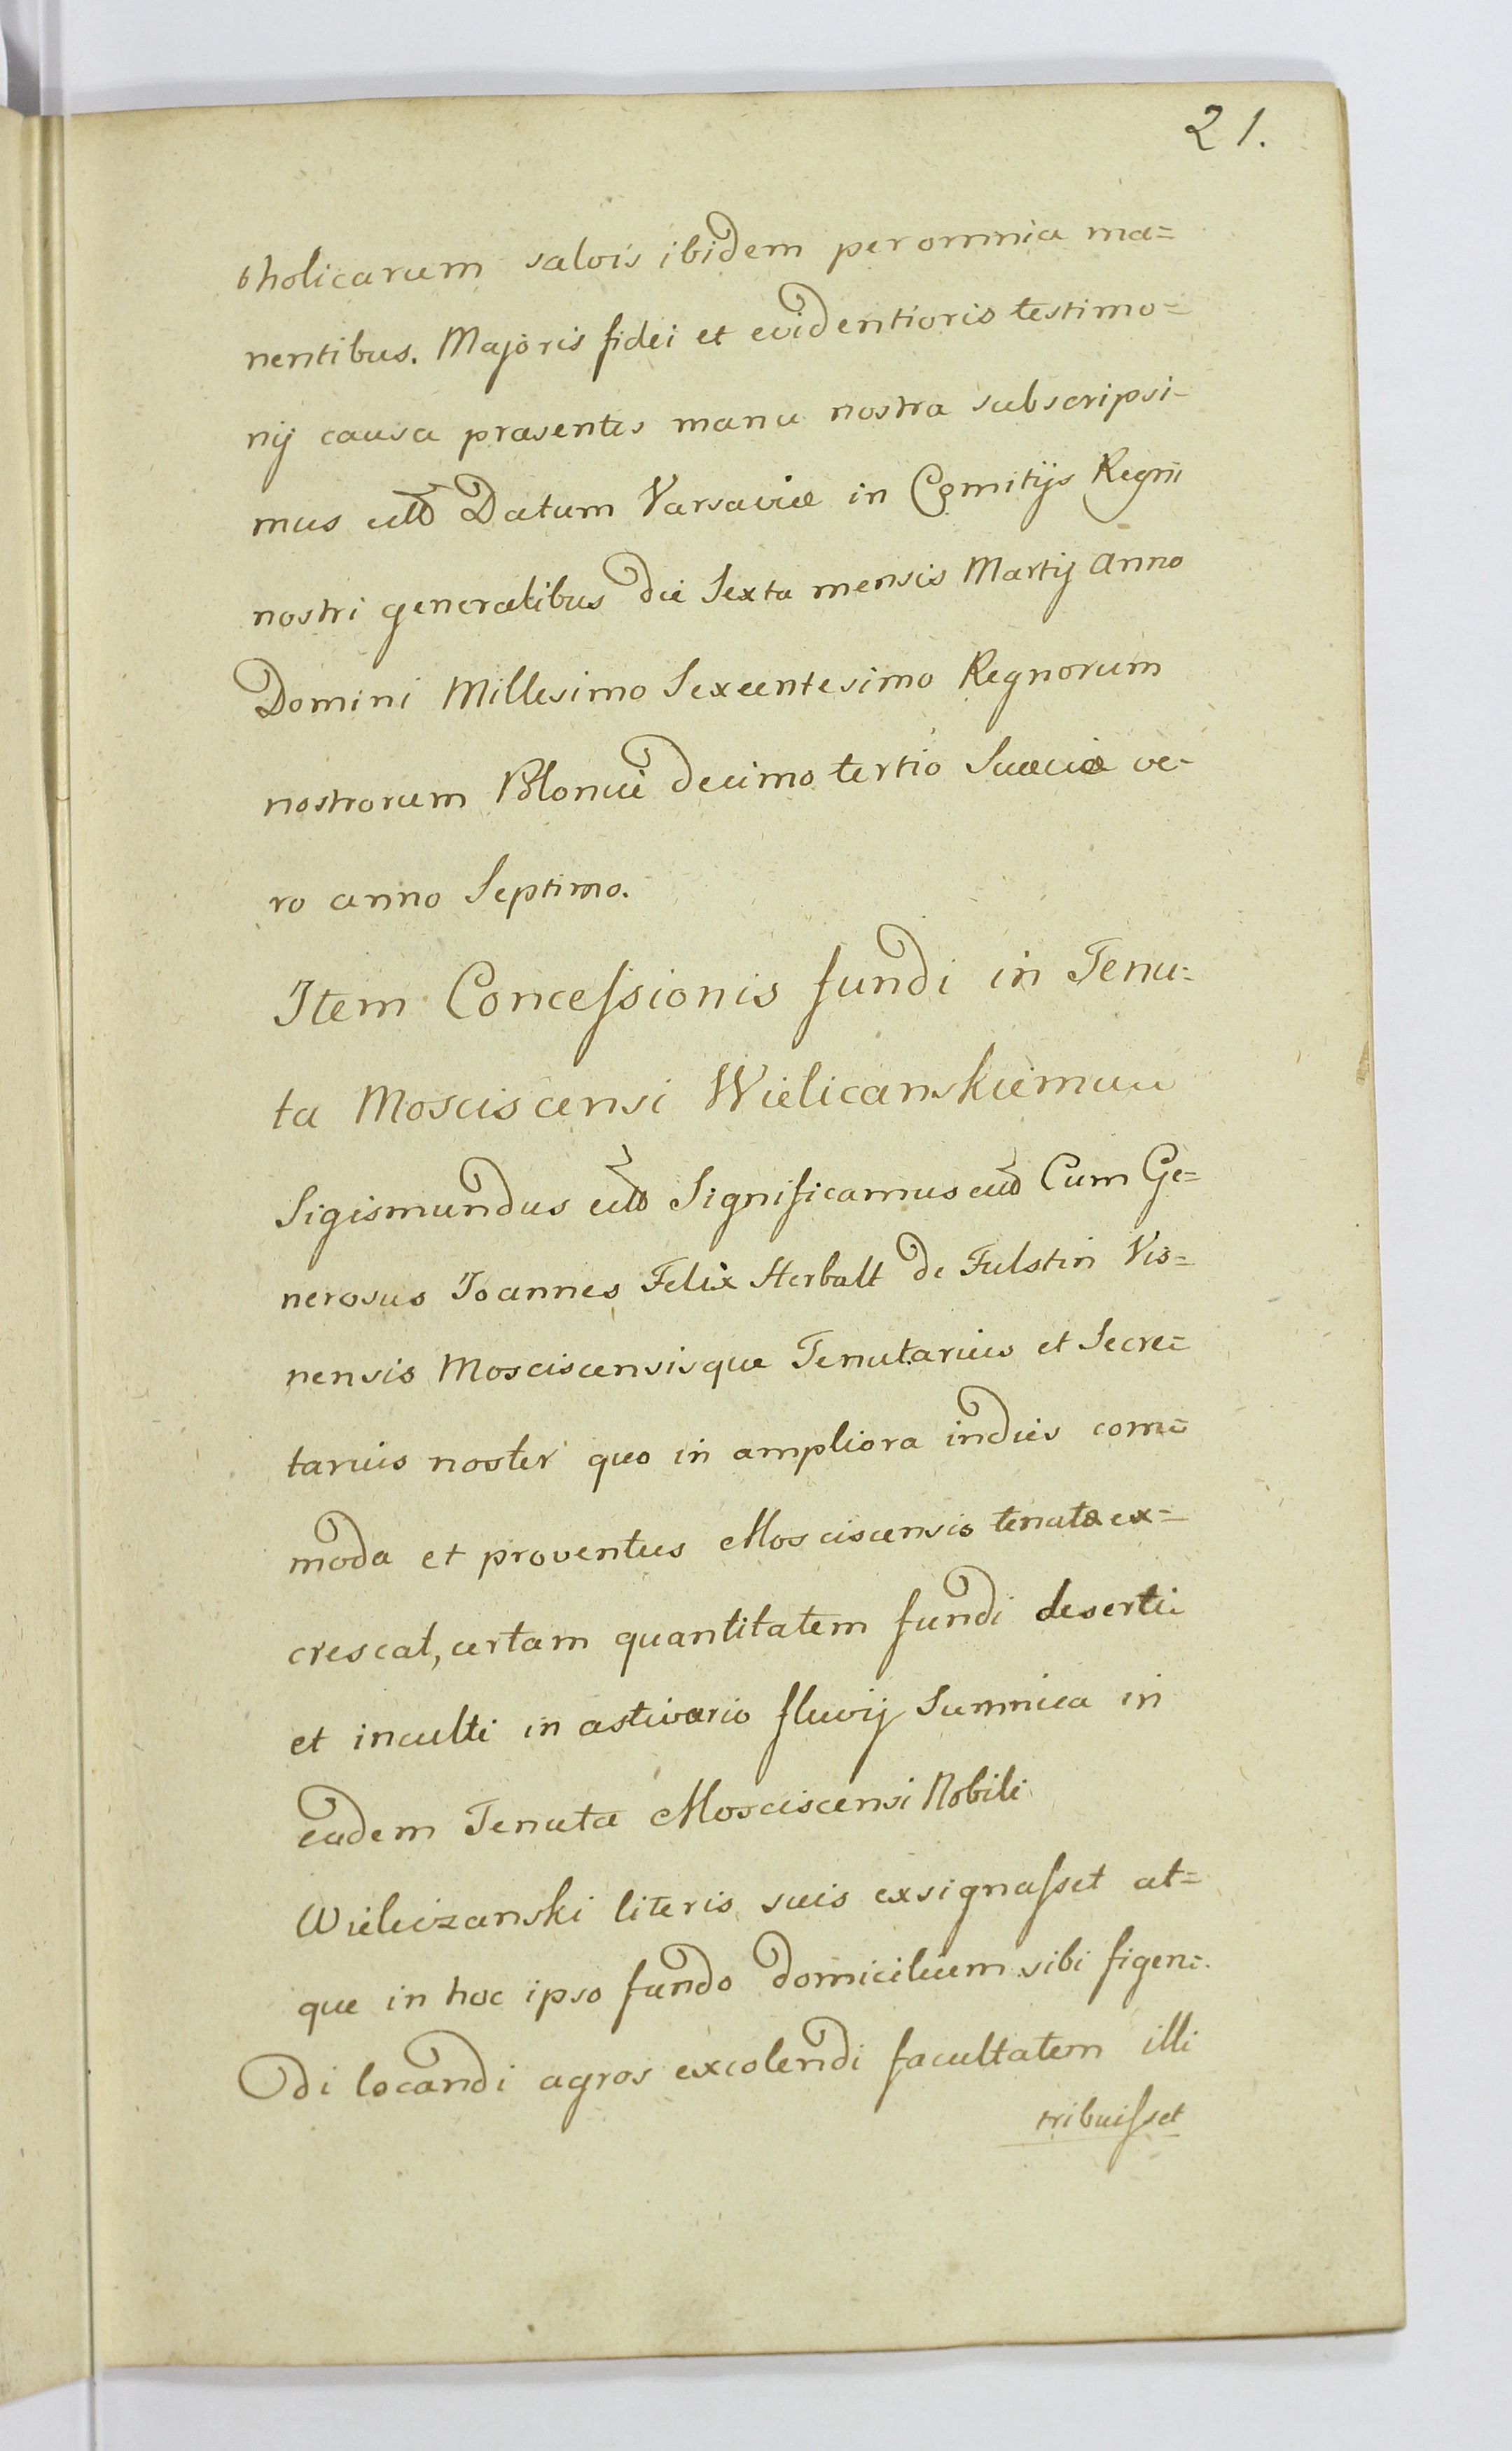 21.
tholicarum salvis ibidem per omnia ma=
nentibus. Majoris fidei et evidentioris testimo=
nij causa præsentes manu nostra subscripsi-
mus Datum Varsaviæ in Comitijs Regni
nostri generalibus die Sexta mensis Martij Anno
Domini Millesimo Sexcentesimo Regnorum
nostrorum Poloniæ decimo tertio Sueciæ ve-
ro anno Septimo.
Item Concessionis fundi in Tenu=
ta Mosciscensi Wielicanskiemuu
Sigismundus Significamus Cum Ge=
nerosus Joannes Felix Herbalt de Fulstin Vis=
nensis Mosciscensisque Tenutarius et Secre=
tarius noster quo in ampliora indies com=
moda et proventus Mosciscensis tenuta ex=
crescat, certam quantitatem fundi deserti
et inculti in æstivario fluvij Sumnica in
eadem Tenuta Mosciscensi Nobili
Wieliczanski literis suis exsignasset at=
que in hoc ipso fundo domicilium sibi figen=
di locandi agros excolendi facultatem illi
tribuisset